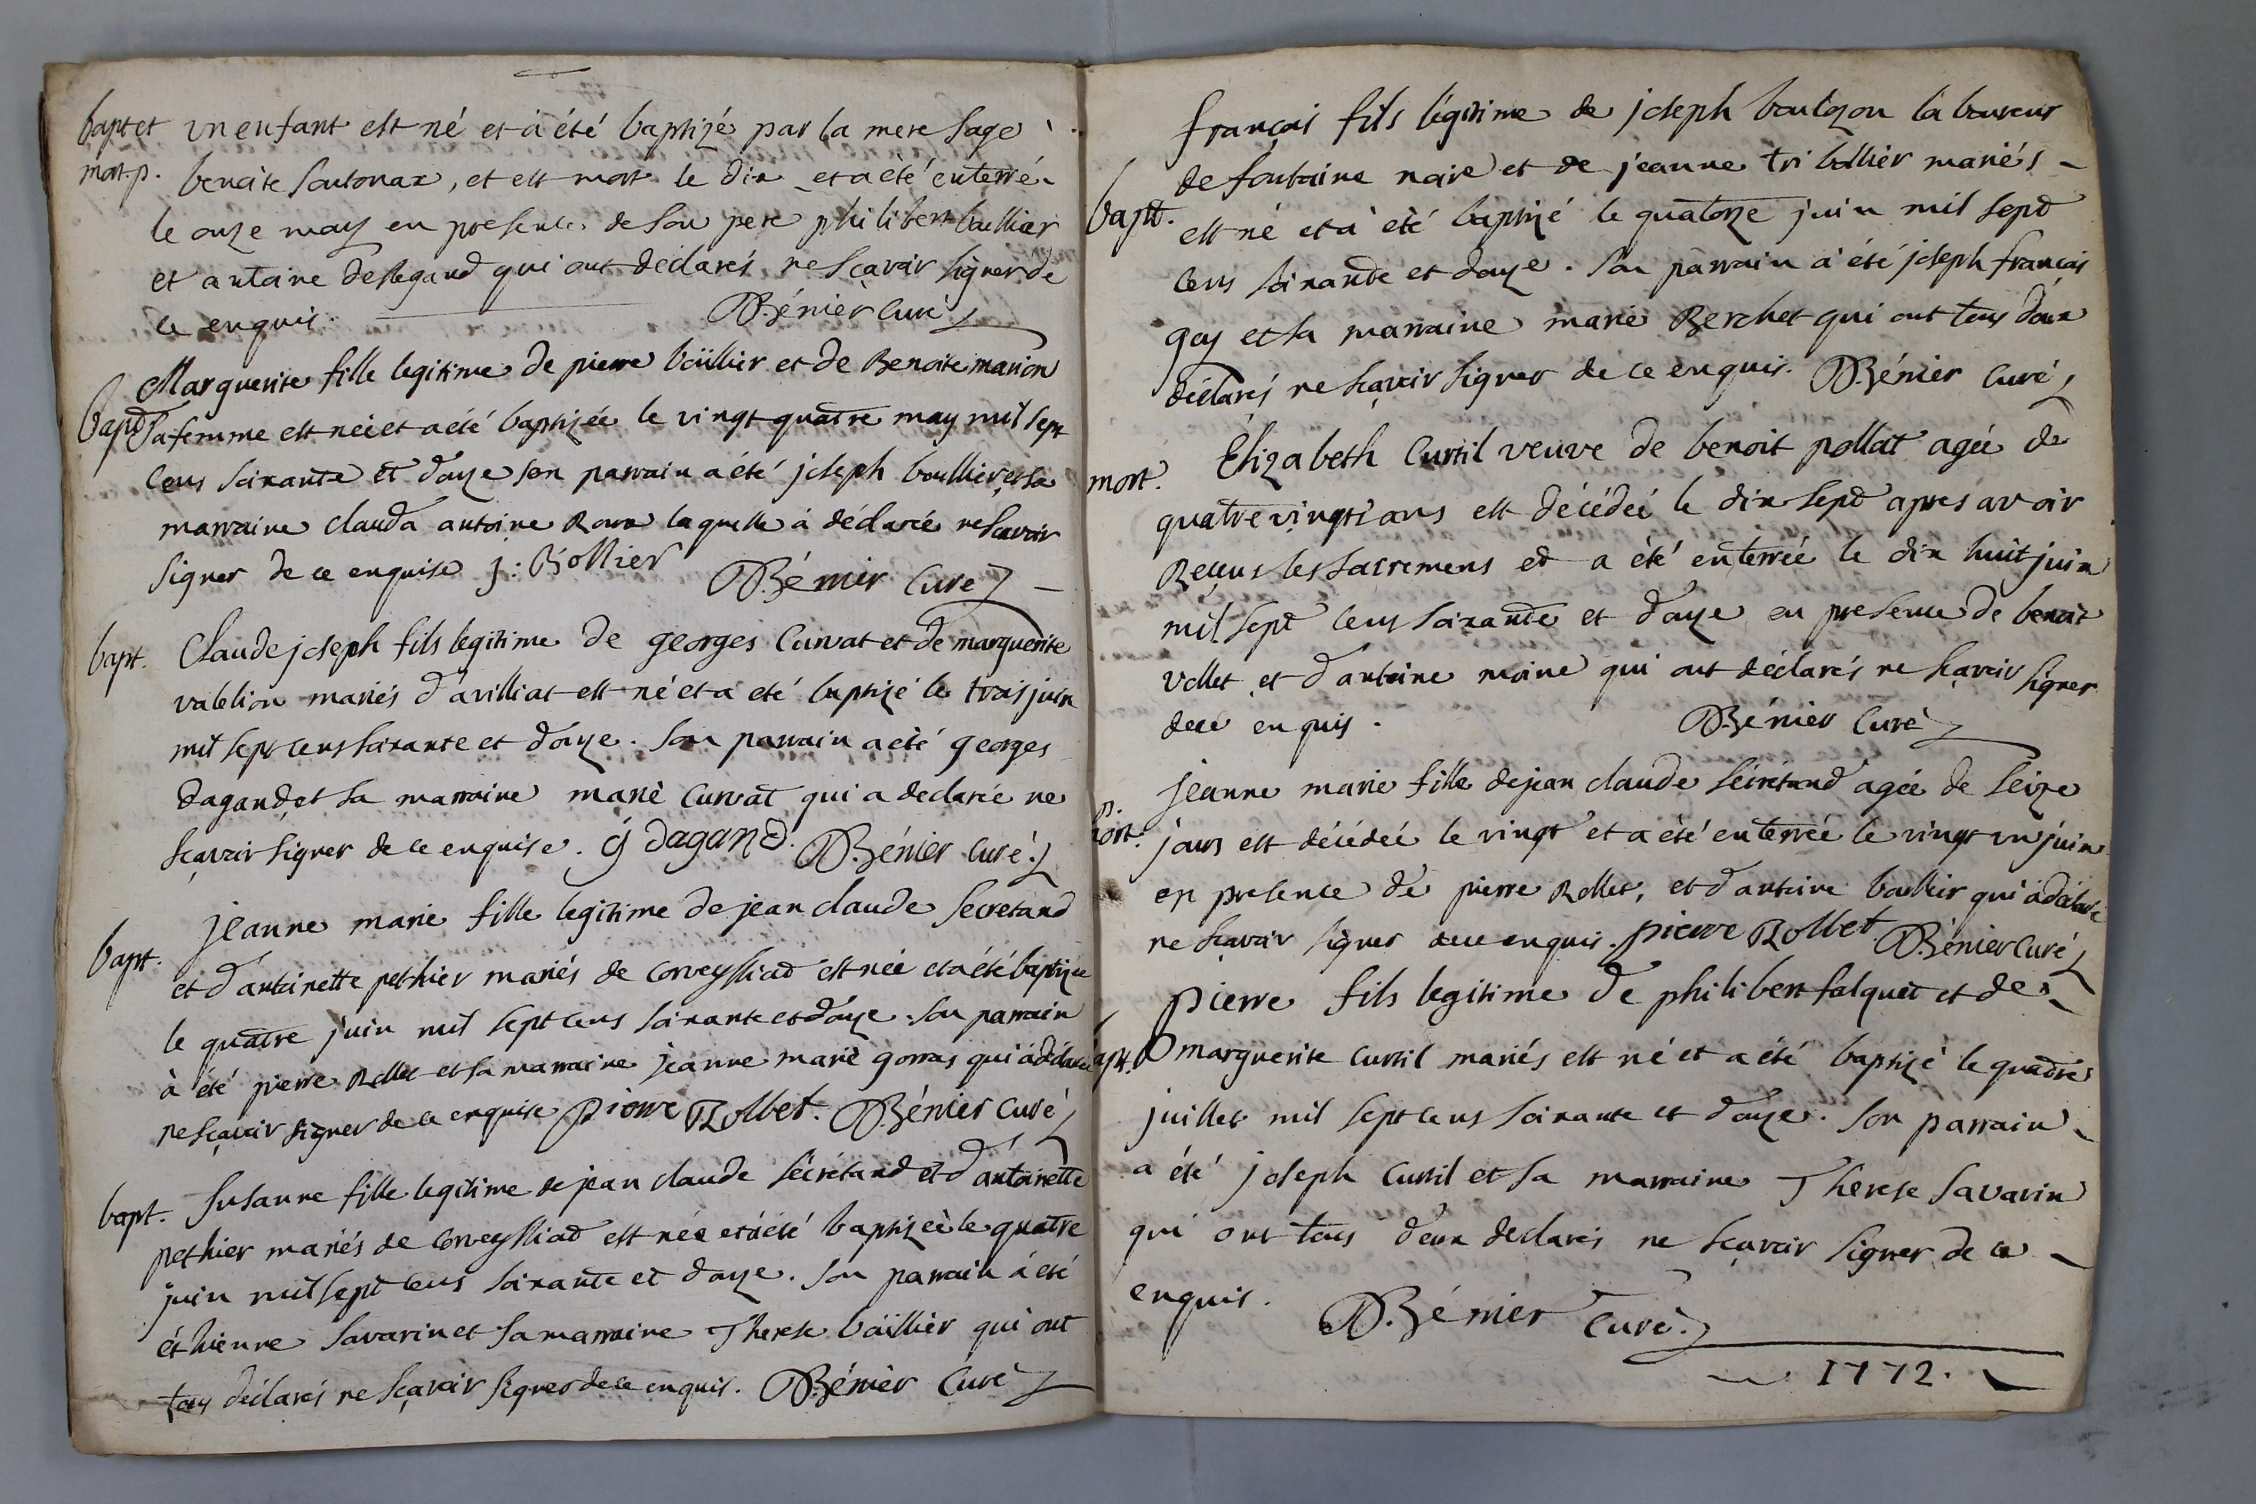 bapt et un enfant est né et à été baptizé par la mere sage
mort p. benoite soutonax, et est mort le dix et a été enterré
le onze may en presence de son pere philibert boullier
et antoine deslegand qui ont déclarés ne sçavoir signer de
ce enquis. D. Bénier Curé
Marguerite fille legitime de pierre boüllier et de Benoite marion
bapt. sa femme est neé et a été baptizée le vingt quatre may mil sept
cens soixante et douze son parrain a été joseph boullier et sa
marraine clauda antoine Roux laquelle à déclarée ne scavoir
signer de ce enquise j: Bollier D. Bénier Curé
bapt. Claude joseph fils legitime de georges Curvat et de marguerite
valelion mariés d'avilliat est né et a été baptizé le trois juin
mil sept cens soixante et douze. Son parrain a été georges
dagand et sa marraine marie Curvat qui a declarée ne
sçavoir signer de ce enquise. g dagand. D. Bénier Curé.
jeanne marie fille legitime de jean claude secretand
bapt. et d'antoinette pethier mariés de Corveyssiad est neé et a été baptizée
le quatre juin mil sept cens soixante et douze. son parrain
à été pierre Rollet et sa marraine jeanne marie gorras qui a déclarée
ne sçavoir signer de ce enquise pierre Rollet. D. Bénier Curé
bapt. Susanne fille legitime de jean claude sécrétand et d'antoinette
pethier mariés de Corveyssiad est née et à été baptizeé le quatre
juin mil sept cens soixante et douze. son parrain à été
éthienne savarin et sa marraine Therese boüllier qui ont
tous déclarés ne sçavoir signer de ce enquis. D. Bénier Curé
françois fils légitime de joseph boulzon laboureur
de fontaine noire et de jeanne tribollier mariés
bapt. est né et à été baptizé le quatorze juin mil sept
cens soixante et douze. son parrain à été joseph françois
goy et sa marraine marie Berchet qui ont tous deux
déclarés ne sçavoir signer de ce enquis. D. Bénier Curé
Élizabeth Curtil veuve de benoit pollat ageé de
mort. quatre vingts ans est décédeé le dix sept apres avoir
Reçeus les sacremens et a été enterreé le dix huit juin
mil sept cens soixante et douze en presence de benoit
vollet et d'antoine moine qui ont déclarés ne sçavoir signer
de ce enquis. D. Bénier Curé
jeanne marie fille de jean claude sécrétand ageé de seize
p. mort. jours est décédeé le vingt et a été enterreé le vingt un juin
en presence de pierre Rollet, et d'antoine boullier qui a déclaré
ne sçavoir signer de ce enquis. pierre Rollet D. Bénier Curé
pierre fils legitime de philibert falquet et de
bapt. marguerite Curtil mariés est né et a été baptizé le quatre
juillet mil sept cens soixante et douze. son parrain
a été joseph Curtil et sa marraine Therese savarin
qui ont tous deux declarés ne sçavoir signer de ce
enquis. D. Bénier Curé.
1772.